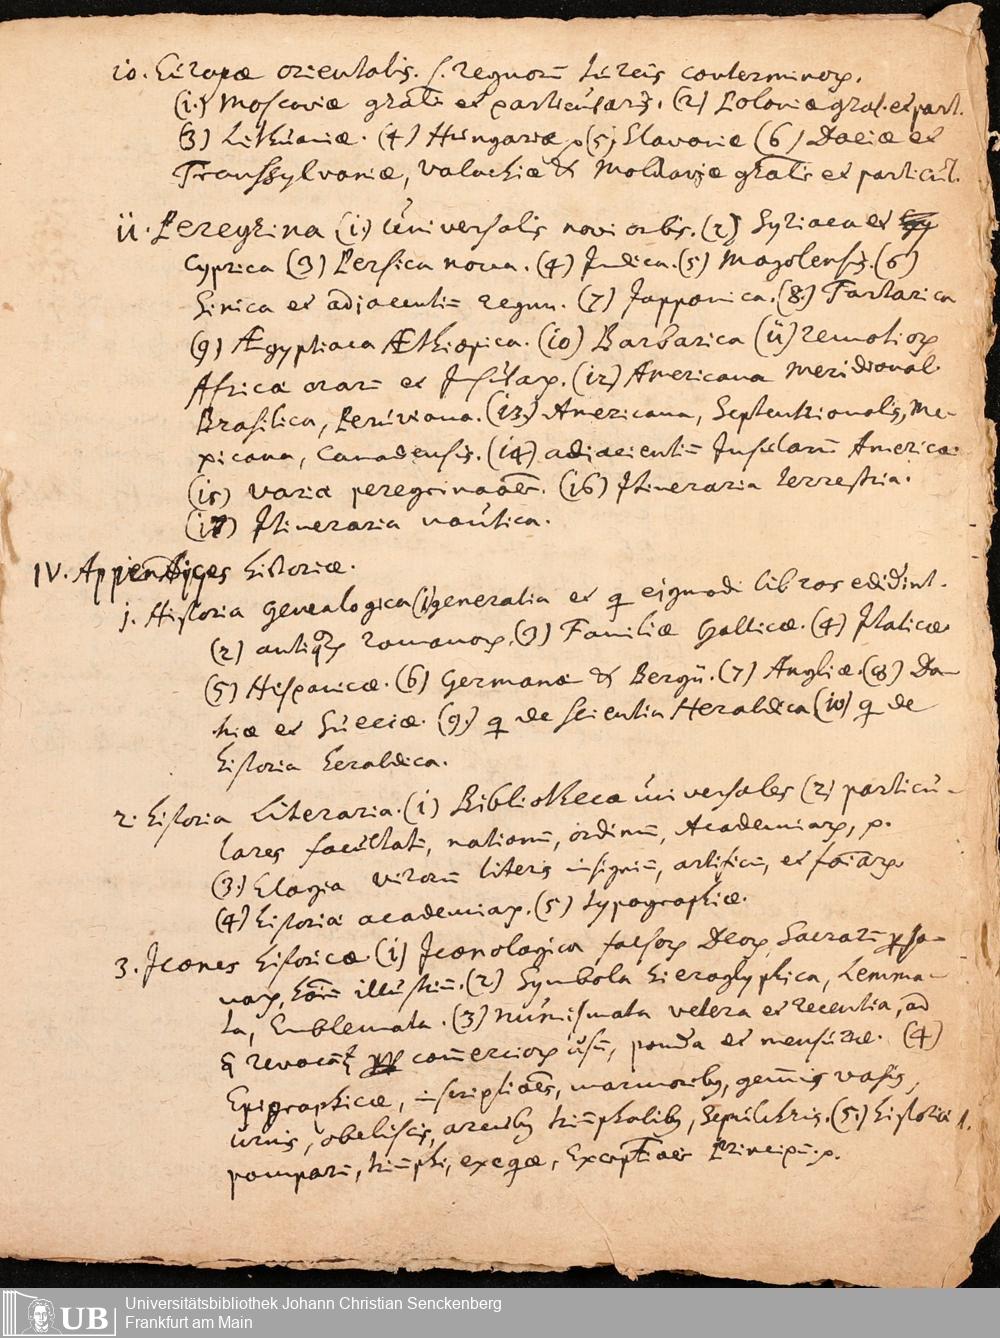 10. Europæ orientalis. s. regnorū turcis conterminor.
(1.) Moscoviæ gralis et particularis. (2) Poloniæ gral. et part.
(3) Lithuaniæ. (4) Hungariæ (5) Slavoniæ (6) Daciæ et
Transsylvaniæ, Valachiæ & Moldaviæ gralis et particul.
11. Peregrina (1.) Universalis novi orbis. (2) Syriaca et
Cyprica (3) Persica nova. (4) Indica. (5) Mogolensis. (6)
Sinica et adjacentiū regnn. (7) Japponica. (8.) Tartarica
(9) Ægyptiaca Æthiopica. (10) Barbarica (11) remotior
Africæ orarū et Insular. (12) Americana meridional
Brasilica, Peruviana. (13.) Americana, Septentrionalis, Me-
xicana, Canadensis. (14) adiacientiū Insularū Americæ.
(15) variæ peregrinaões. (16) Itineraria terrestria.
(17) Itineraria nautica.
IV. Appendices historiæ.
1. Historia genealogica (1) generalia et q eiusmodi libros edidert.
(2) antiqr romanor. (3) Familiæ Gallicæ. (4) Italicæ.
(5) Hispanicæ. (6) Germanæ & Belgii. (7) Angliæ. (8) Da-
niæ et Sueciæ. (9.) q de scientia Heraldica (10) q de
historia heraldica.
2. historia Literaria. (1) Bibliothecæ universales (2) particu-
lares facultatū, nationū, ordinū, Academiar, p.
(3.) Elogia virorū literis insigniū, artificū, et foīar
(4) historiæ academiar. (5) typographiæ.
3. Icones historicæ (1) Iconologica falsor Deor, Sacrarū psо-
nar, hōīū illustriū. (2) Symbola hieroglyphica, Lemma-
ta, Emblemata. (3) numismata vetera et recentia, ad
q revocant comerciorv usū, pondra et mensuræ. (4)
Epigraphicæ, inscriptiões, marmorib, gemīs vasis,
urnis, obeliscis, arcub triūphalib, sepulchris. (5.) historiæ
pomparū, triūphi, exeqæ, Exceptiões Principū. p.
Universitätsbibliothek Johann Christian Senckenberg
UB Frankfurt am Main